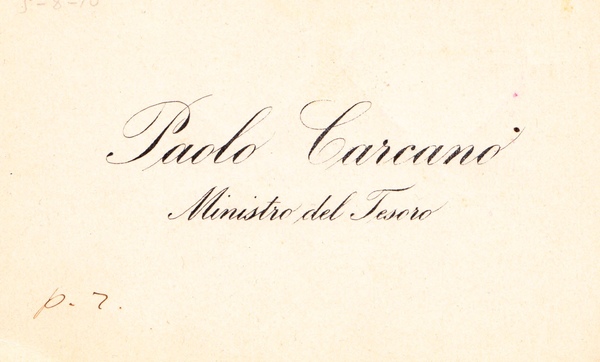 5-8-10
Paolo Carcano
Ministro del Tesoro
p. r.